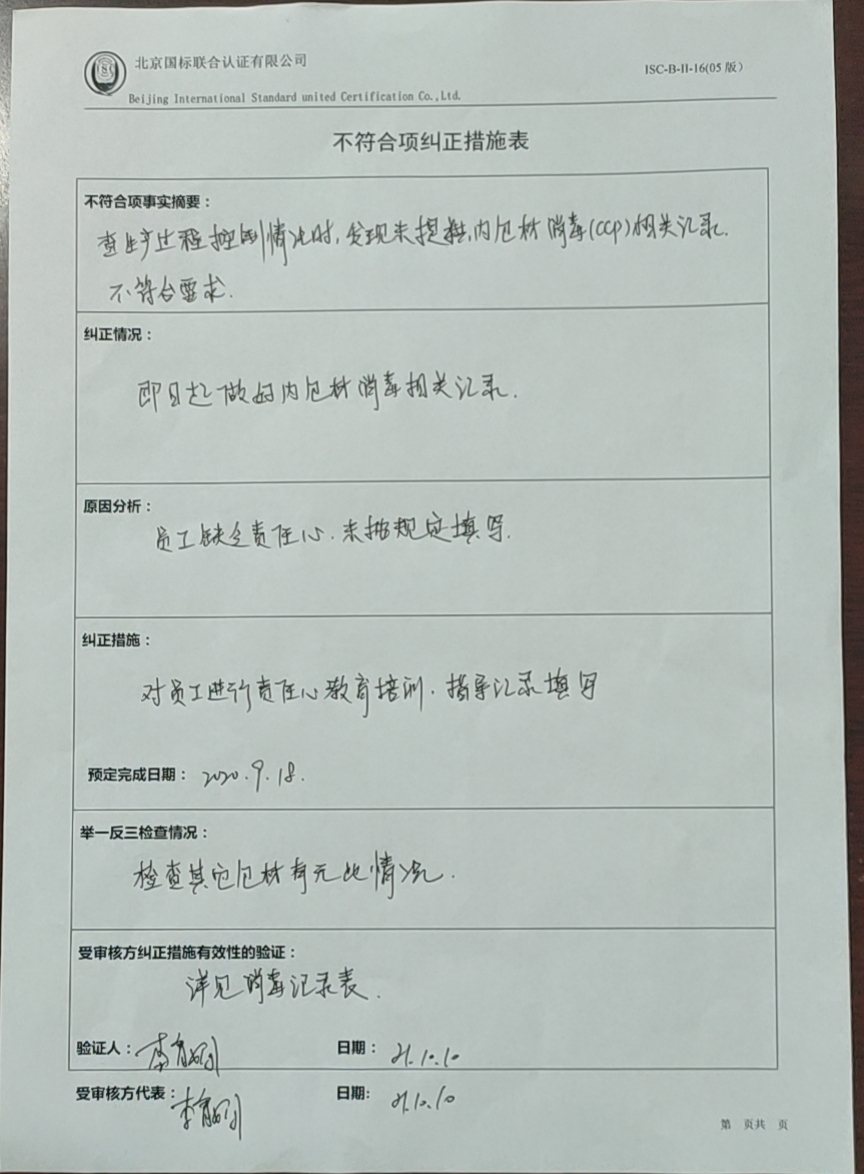 北京国标联合认证有限公司
ISC-B-II-16(05 版)
Beijing International Standard united Certification Co.,Ltd.
不符合项纠正措施表
不符合项事实摘要：
查生产过程控制情况时,发现未提供,内包材消毒(CCP)相关记录.
不符合要求.
纠正情况：
即日起做好内包材消毒相关记录.
原因分析：
员工缺乏责任心.未按规定填写.
纠正措施：
对员工进行责任心教育培训.指导记录填写
预定完成日期： 2020.9.18.
举一反三检查情况：
检查其它包材有无此情况.
受审核方纠正措施有效性的验证：
详见消毒记录表.
验证人： 日期： 21.10.10
受审核方代表： 日期: 21.10.10
第 页共 页